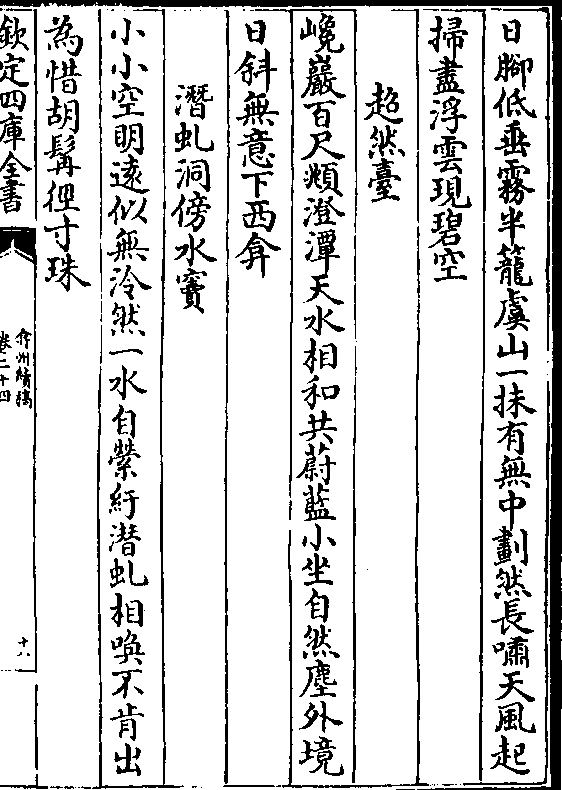 日腳低垂霧半籠虞山一抹有無中劃然長嘯天風起
掃盡浮雲現碧空
超然臺
巉巖百尺頫澄潭天水相和共蔚藍小坐自然塵外境
日斜無意下西弇
潛虬洞傍水竇
小小空明遠似無泠然一水自縈紆潛虬相喚不肯出
為惜胡髯徑寸珠
欽定四庫全書
弇州續稿
卷二十四
十八